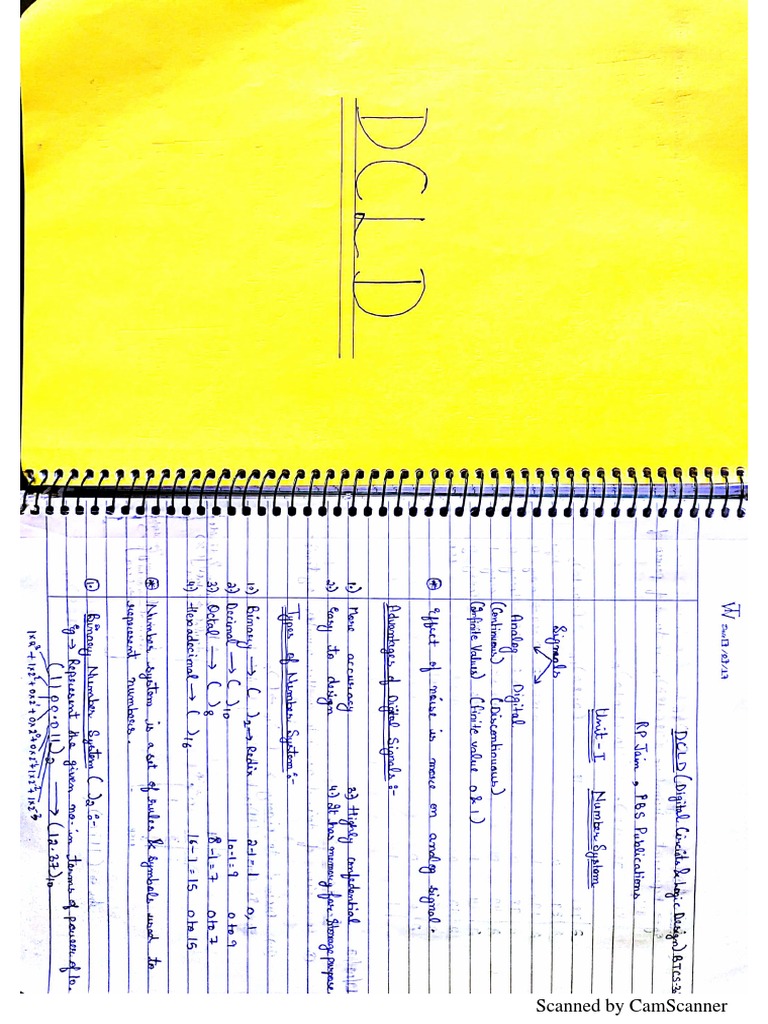 DCLD
DCLD (Digital Circuits & Logic Design) BTCS-3
RP Jain, PBS Publications
Unit-I Number System
Signals
Analog Digital
(Continuous) (Discontinuous)
(Infinite Values) (finite value 0 & 1)
* Effect of noise is more on analog signal.
Advantages of Digital Signals:-
1.) More accuracy 3.) Highly confidential
2.) Easy to design 4.) It has memory for storage purpose
Types of Number System:-
1.) Binary → ( )2 → Redix 2-1=1 0,1
2) Decimal → ( )10 10-1=9 0 to 9
3) Octal → ( )8 8-1=7 0 to 7
4) Hexadecimal → ( )16 16-1=15 0 to 15
* Number system is a set of rules & symbols used to
represent numbers.
1. Binary Number System ( )2 :-
eg → Represent the given no. in terms of power of 10.
(1100.011)2 → (12.37)10
1x2³+1x2²+0x2¹+0x2⁰+0x2⁻¹+1x2⁻²+1x2⁻³
Scanned by CamScanner